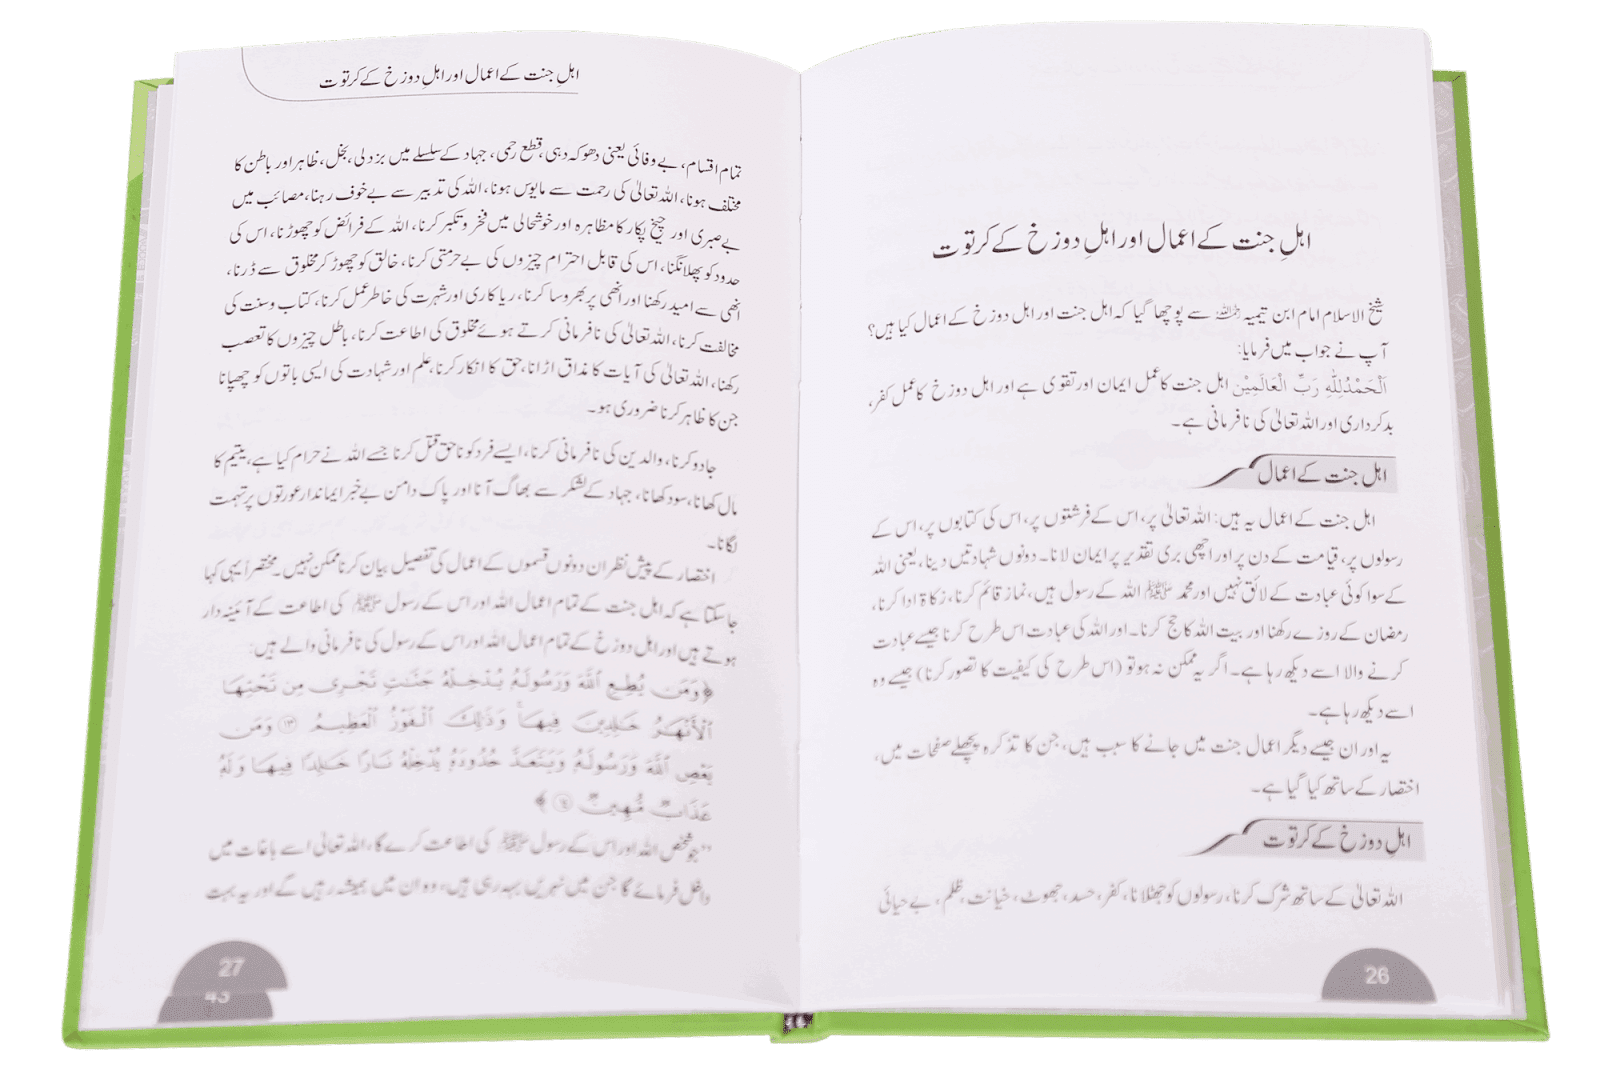 اہلِ جنت کے اعمال اور اہلِ دوزخ کے کرتوت
شیخ الاسلام امام ابن تیمیہ رحمہ اللہ سے پوچھا گیا کہ اہل جنت اور اہل دوزخ کے اعمال کیا ہیں؟
آپ نے جواب میں فرمایا:
اَلْحَمْدُلِلّٰهِ رَبِّ الْعَالَمِيْن اہل جنت کا عمل ایمان اور تقوی ہے اور اہل دوزخ کا عمل کفر،
بدکرداری اور اللہ تعالیٰ کی نافرمانی ہے۔
اہل جنت کے اعمال
اہل جنت کے اعمال یہ ہیں: اللہ تعالیٰ پر، اس کے فرشتوں پر، اس کی کتابوں پر، اس کے
رسولوں پر، قیامت کے دن پر اور اچھی بری تقدیر پر ایمان لانا۔ دونوں شہادتیں دینا، یعنی اللہ
کے سوا کوئی عبادت کے لائق نہیں اور محمد ﷺ اللہ کے رسول ہیں، نماز قائم کرنا، زکاۃ ادا کرنا،
رمضان کے روزے رکھنا اور بیت اللہ کا حج کرنا۔ اور اللہ کی عبادت اس طرح کرنا جیسے عبادت
کرنے والا اسے دیکھ رہا ہے۔ اگر یہ ممکن نہ ہو تو (اس طرح کی کیفیت کا تصور کرنا) جیسے وہ
اسے دیکھ رہا ہے۔
یہ اور ان جیسے دیگر اعمال جنت میں جانے کا سبب ہیں، جن کا تذکرہ پچھلے صفحات میں،
اختصار کے ساتھ کیا گیا ہے۔
اہلِ دوزخ کے کرتوت
اللہ تعالیٰ کے ساتھ شرک کرنا، رسولوں کو جھٹلانا، کفر، حسد، جھوٹ، خیانت، ظلم، بے حیائی
26
اہلِ جنت کے اعمال اور اہلِ دوزخ کے کرتوت
تمام اقسام، بے وفائی یعنی دھوکہ دہی، قطع رحمی، جہاد کے سلسلے میں بزدلی، بخل، ظاہر اور باطن کا
مختلف ہونا، اللہ تعالیٰ کی رحمت سے مایوس ہونا، اللہ کی تدبیر سے بے خوف رہنا، مصائب میں
بے صبری اور چیخ پکار کا مظاہرہ اور خوشحالی میں فخر و تکبر کرنا، اللہ کے فرائض کو چھوڑنا، اس کی
حدود کو پھلانگنا، اس کی قابل احترام چیزوں کی بے حرمتی کرنا، خالق کو چھوڑ کر مخلوق سے ڈرنا،
انھی سے امید رکھنا اور انھی پر بھروسا کرنا، ریاکاری اور شہرت کی خاطر عمل کرنا، کتاب و سنت کی
مخالفت کرنا، اللہ تعالیٰ کی نافرمانی کرتے ہوئے مخلوق کی اطاعت کرنا، باطل چیزوں کا تعصب
رکھنا، اللہ تعالیٰ کی آیات کا مذاق اڑانا، حق کا انکار کرنا، علم اور شہادت کی ایسی باتوں کو چھپانا
جن کا ظاہر کرنا ضروری ہو۔
جادو کرنا، والدین کی نافرمانی کرنا، ایسے فرد کو ناحق قتل کرنا جسے اللہ نے حرام کیا ہے، یتیم کا
مال کھانا، سود کھانا، جہاد کے لشکر سے بھاگ آنا اور پاک دامن بے خبر ایماندار عورتوں پر تہمت
لگانا۔
اختصار کے پیش نظر ان دونوں قسموں کے اعمال کی تفصیل بیان کرنا ممکن نہیں۔ مختصراً یہی کہا
جا سکتا ہے کہ اہل جنت کے تمام اعمال اللہ اور اس کے رسول ﷺ کی اطاعت کے آئینہ دار
ہوتے ہیں اور اہل دوزخ کے تمام اعمال اللہ اور اس کے رسول کی نافرمانی والے ہیں:
﴿وَمَن يُطِعِ ٱللَّهَ وَرَسُولَهُۥ يُدْخِلْهُ جَنَّٰتٍ تَجْرِى مِن تَحْتِهَا
ٱلْأَنْهَٰرُ خَٰلِدِينَ فِيهَا ۚ وَذَٰلِكَ ٱلْفَوْزُ ٱلْعَظِيمُ ⓭ وَمَن
يَعْصِ ٱللَّهَ وَرَسُولَهُۥ وَيَتَعَدَّ حُدُودَهُۥ يُدْخِلْهُ نَارًا خَٰلِدًا فِيهَا وَلَهُۥ
عَذَابٌ مُّهِينٌ ⓮﴾
”جو شخص اللہ اور اس کے رسول ﷺ کی اطاعت کرے گا، اللہ تعالیٰ اسے باغات میں
داخل فرمائے گا جن میں نہریں بہہ رہی ہیں، وہ ان میں ہمیشہ رہیں گے اور یہ بہت
27
43